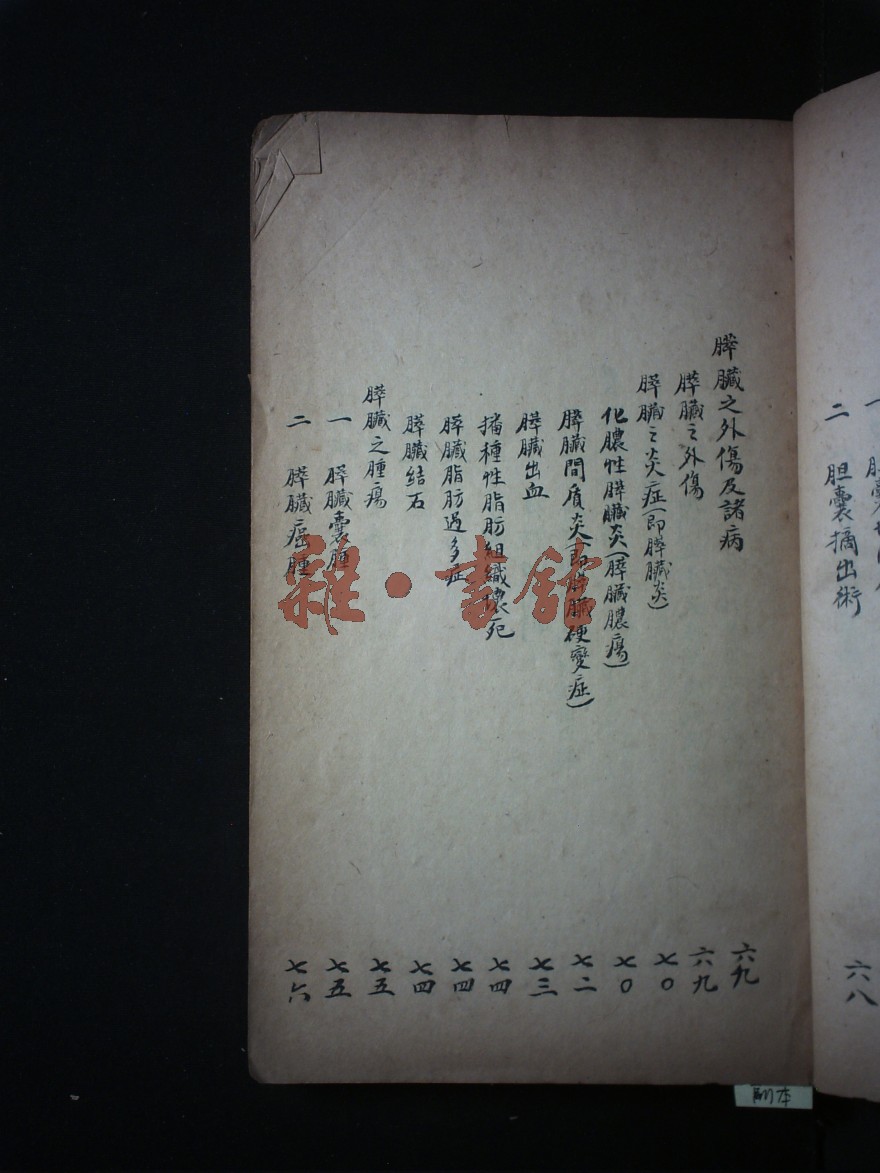 二 胆囊摘出術 六八
膵臓之外傷及諸病 六九
膵臓之外傷 六九
膵臓之炎症(即膵臓炎) 七〇
化膿性膵臓炎(膵臓膿瘍) 七〇
膵臓間質炎(即膵臓硬變症) 七二
膵臓出血 七三
播種性脂肪組織壞死 七四
膵臓脂肪過多症 七四
膵臓結石 七四
膵臓之腫瘍 七五
一 膵臓囊腫 七五
二 膵臓癌腫 七六
雜·書館
刷本